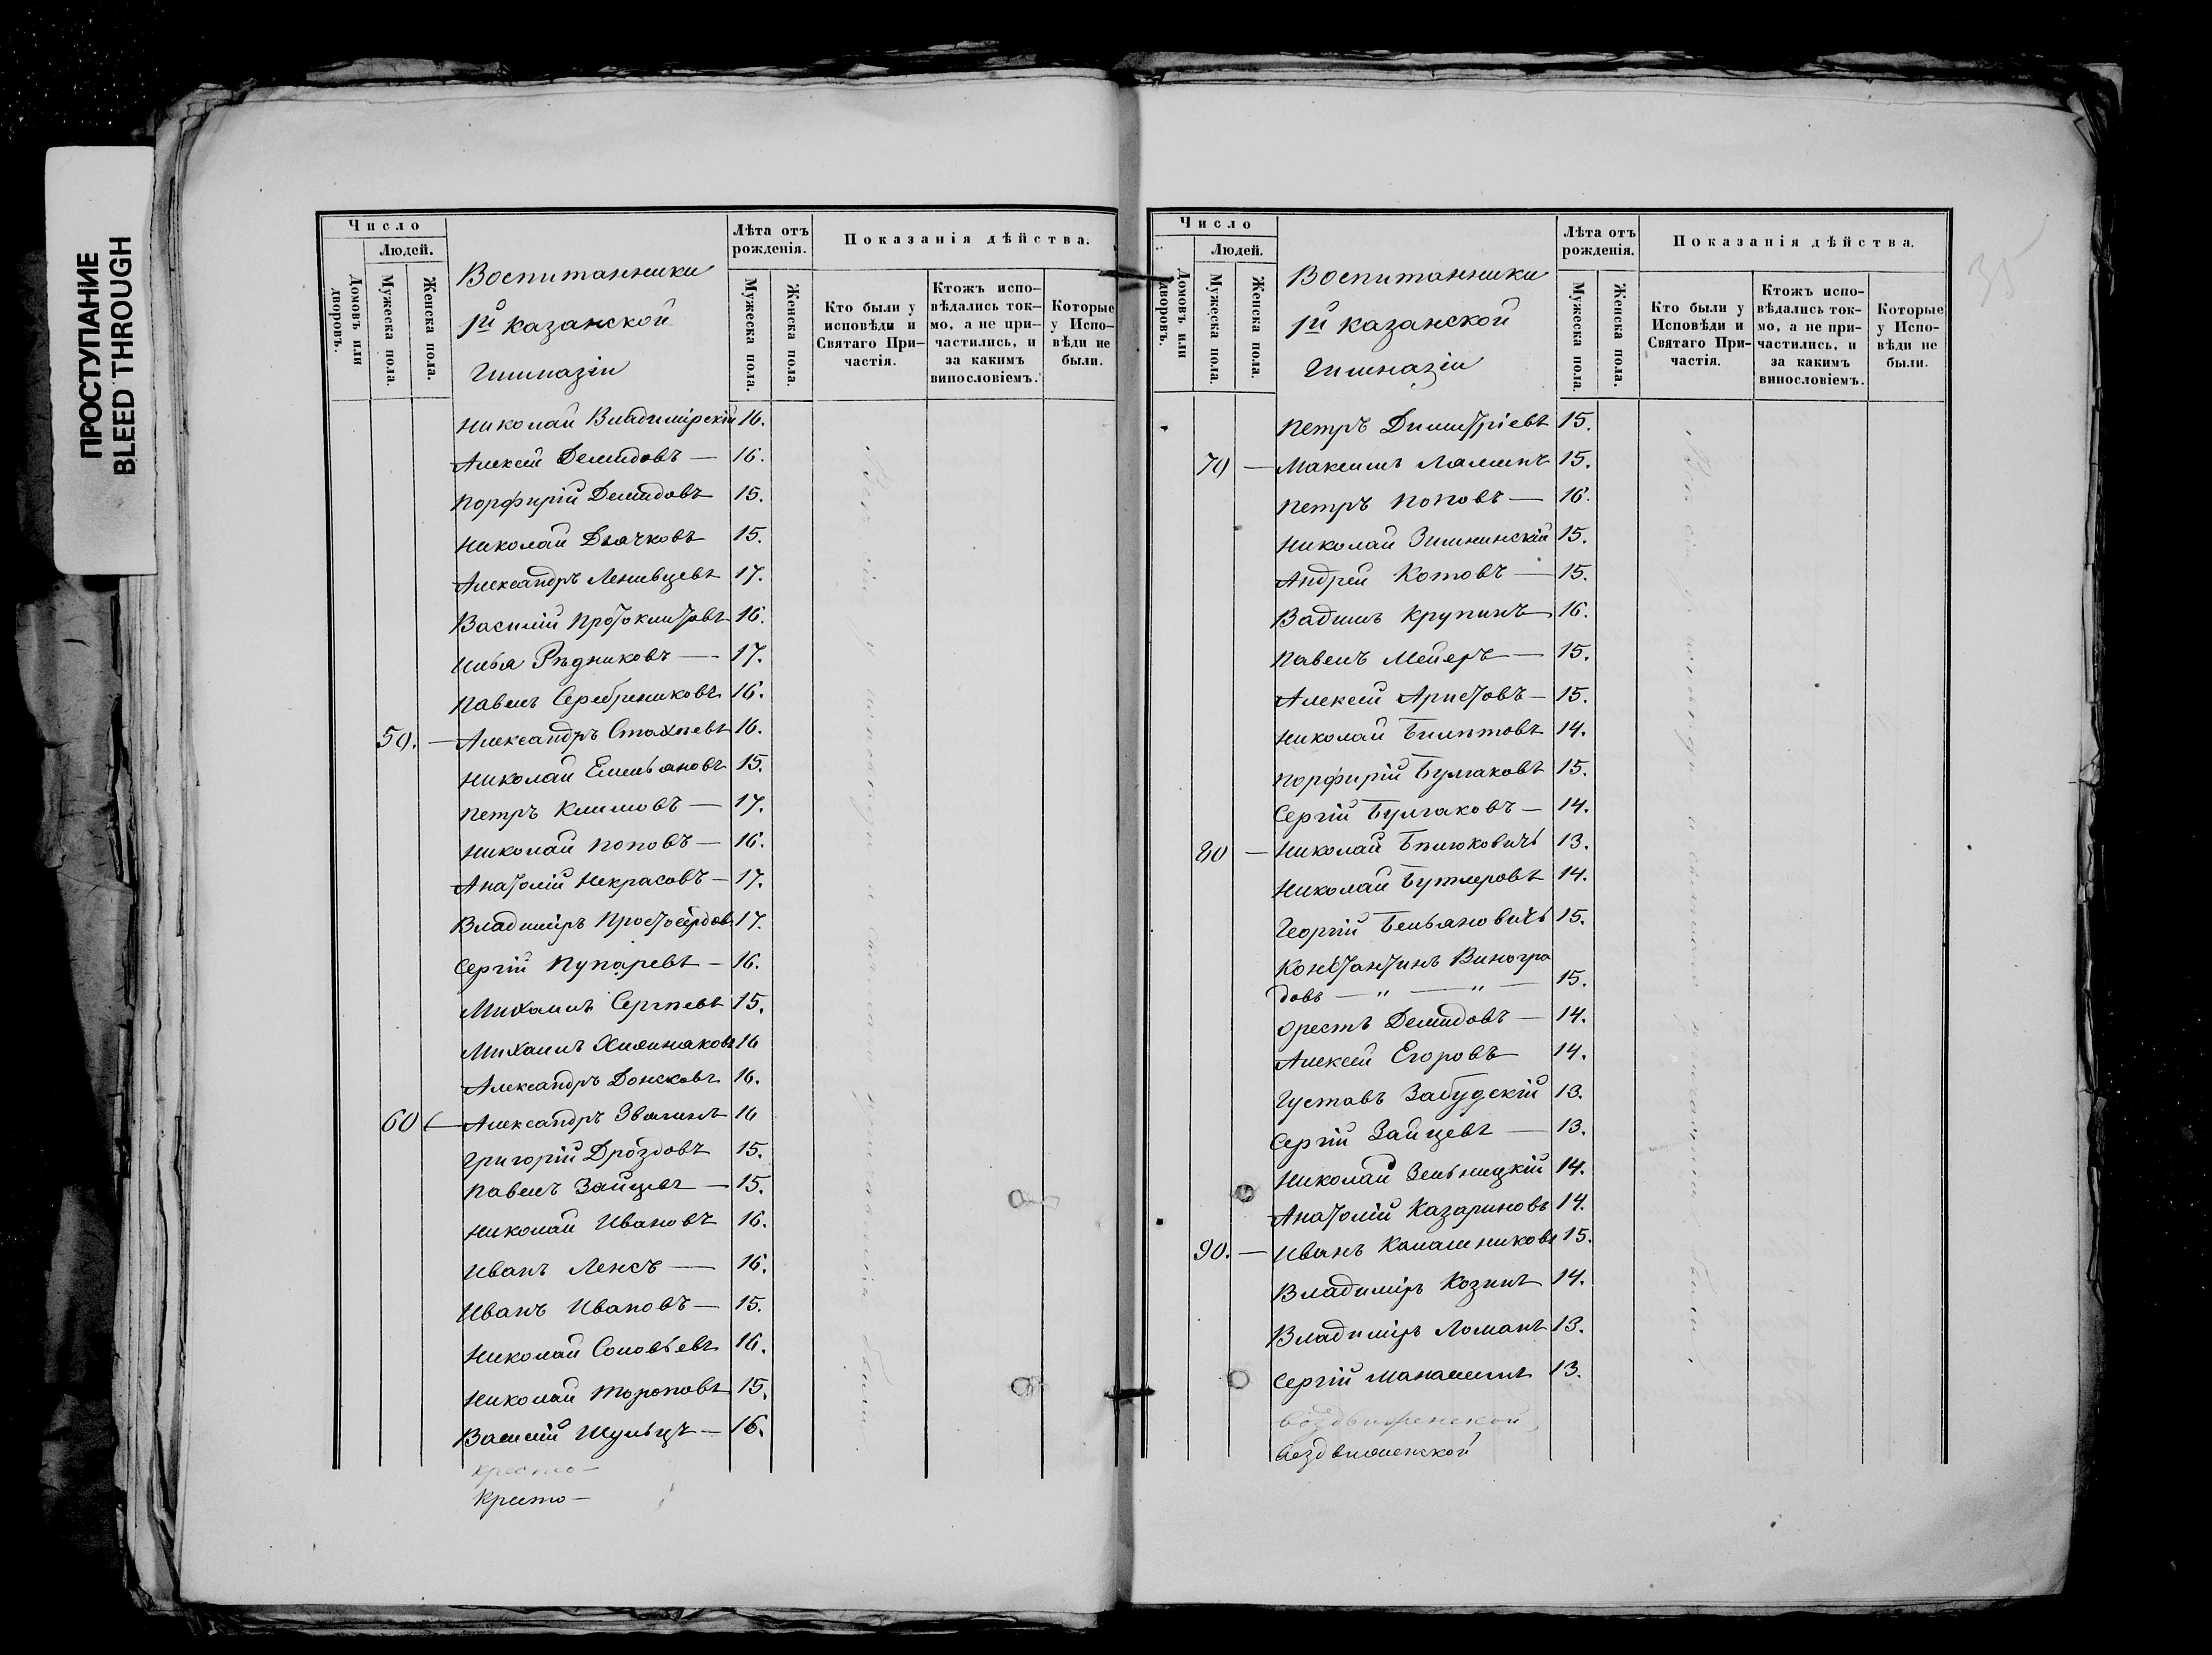 ПРОСТУПАНИЕ
BLEED THROUGH
Число
Людей.
Домовъ или дворовъ.
Мужеска пола.
Женска пола.
Воспитанники
1й Казанской
Гимназіи
Лѣта отъ рожденія.
Мужеска пола.
Женска пола.
Показанія дѣйства.
Кто были у исповѣди и Святаго При-частія.
Ктожъ испо-вѣдались ток-мо, а не при-частились, и за какимъ винословіемъ.
Которые у Испо-вѣди не были.
Николай Владимірскій 16.
Алексѣй Демидовъ — 16.
Порфирій Демидовъ 15.
Николай Дьячковъ 15.
Александръ Ленивцевъ 17.
Василій Протоклитовъ 16.
Илья Рѣдниковъ — 17.
Павелъ Серебрениковъ 16.
50. — Александръ Стахѣевъ 16.
Николай Емельяновъ 15.
Петръ Климовъ — 17.
Николай Поповъ — 16.
Анатолій Некрасовъ — 17.
Владиміръ Простосердов 17.
Сергій Пупаревъ — 16.
Михаилъ Сергѣевъ 15.
Михаилъ Хижняковъ 16
Александръ Донсковъ 16.
60 — Александръ Звагинъ 16
Григорій Дроздовъ 15.
Павелъ Зайцевъ — 15.
Николай Ивановъ 16.
Иванъ Ленсъ — 16.
Иванъ Ивановъ — 15.
Николай Соловьевъ 16.
Николай Тороповъ 15.
Василій Шульцъ — 16.
Кресто—
Кресто—
35
Число
Людей.
Домовъ или дворовъ.
Мужеска пола.
Женска пола.
Воспитанники
1й Казанской
Гимназіи
Лѣта отъ рожденія.
Мужеска пола.
Женска пола.
Показанія дѣйства.
Кто были у Исповѣди и Святаго При-частія.
Ктожъ испо-вѣдались ток-мо, а не при-частились, и за какимъ винословіемъ.
Которые у Испо-вѣди не были.
Петръ Димитріевъ 15.
70 — Максимъ Ляминъ 15.
Петръ Поповъ — 16.
Николай Зимнинскій 15.
Андрей Котовъ — 15.
Вадимъ Крупинъ 16.
Павелъ Мейеръ — 15.
Алексѣй Аристовъ — 15.
Николай Билѣтовъ 14.
Порфирій Булгаковъ 15.
Сергій Булгаковъ — 14.
80 — Николай Бѣлюковичъ 13.
Николай Бутлеровъ 14.
Георгій Бельяновичъ 15.
Константинъ Виногра
довъ — „ — „ — 15.
Орестъ Демидовъ — 14.
Алексѣй Егоровъ 14.
Густавъ Забудскій 13.
Сергій Зайцевъ — 13.
Николай Зельницкій 14.
Анатолій Казариновъ 14.
90. — Иванъ Калашниковъ 15.
Владиміръ Козинъ 14.
Владиміръ Ломанъ 13.
Сергій Манасеинъ 13.
Воздвиженской
Воздвиженской